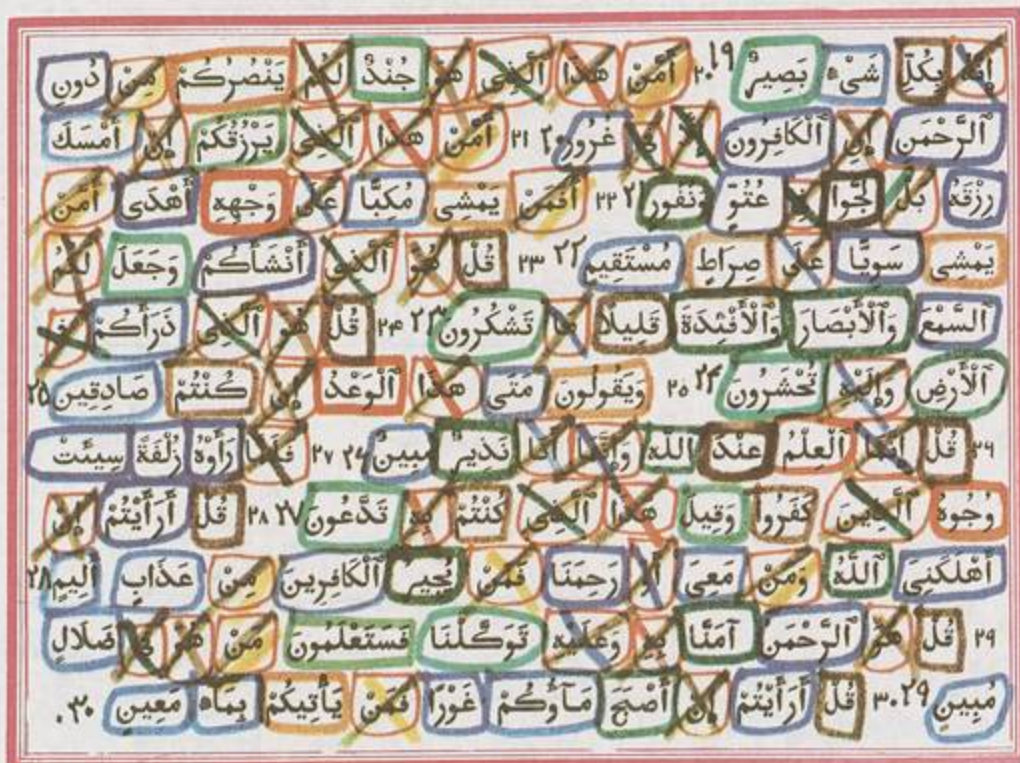 إنه بكل شىء بصير ١٩ ٢٠ أمن هذا الذى هو جند لكم ينصركم من دون
الرحمن إن الكافرون إلا فى غرور ٢٠ ٢١ أمن هذا الذى يرزقكم إن أمسك
رزقه بل لجوا فى عتو ونفور ٢١ ٢٢ أفمن يمشى مكبا على وجهه أهدى أمن
يمشى سويا على صراط مستقيم ٢٢ ٢٣ قل هو الذى أنشأكم وجعل لكم
السمع والأبصار والأفئدة قليلا ما تشكرون ٢٣ ٢۴ قل هو الذى ذرأكم فى
الأرض وإليه تحشرون ٢۴ ٢٥ ويقولون متى هذا الوعد إن كنتم صادقين ٢٥
٢۶ قل إنما العلم عند الله وإنما أنا نذير مبين ٢۶ ٢٧ فلما رأوه زلفة سيئت
وجوه الذين كفروا وقيل هذا الذى كنتم به تدعون ٢٧ ٢٨ قل أرأيتم إن
أهلكنى الله ومن معى أو رحمنا فمن يجير الكافرين من عذاب أليم ٢٨
٢٩ قل هو الرحمن آمنا به وعليه توكلنا فستعلمون من هو فى ضلال
مبين ٢٩ ٣٠ قل أرأيتم إن أصبح مآؤكم غورا فمن يأتيكم بماء معين ٣٠